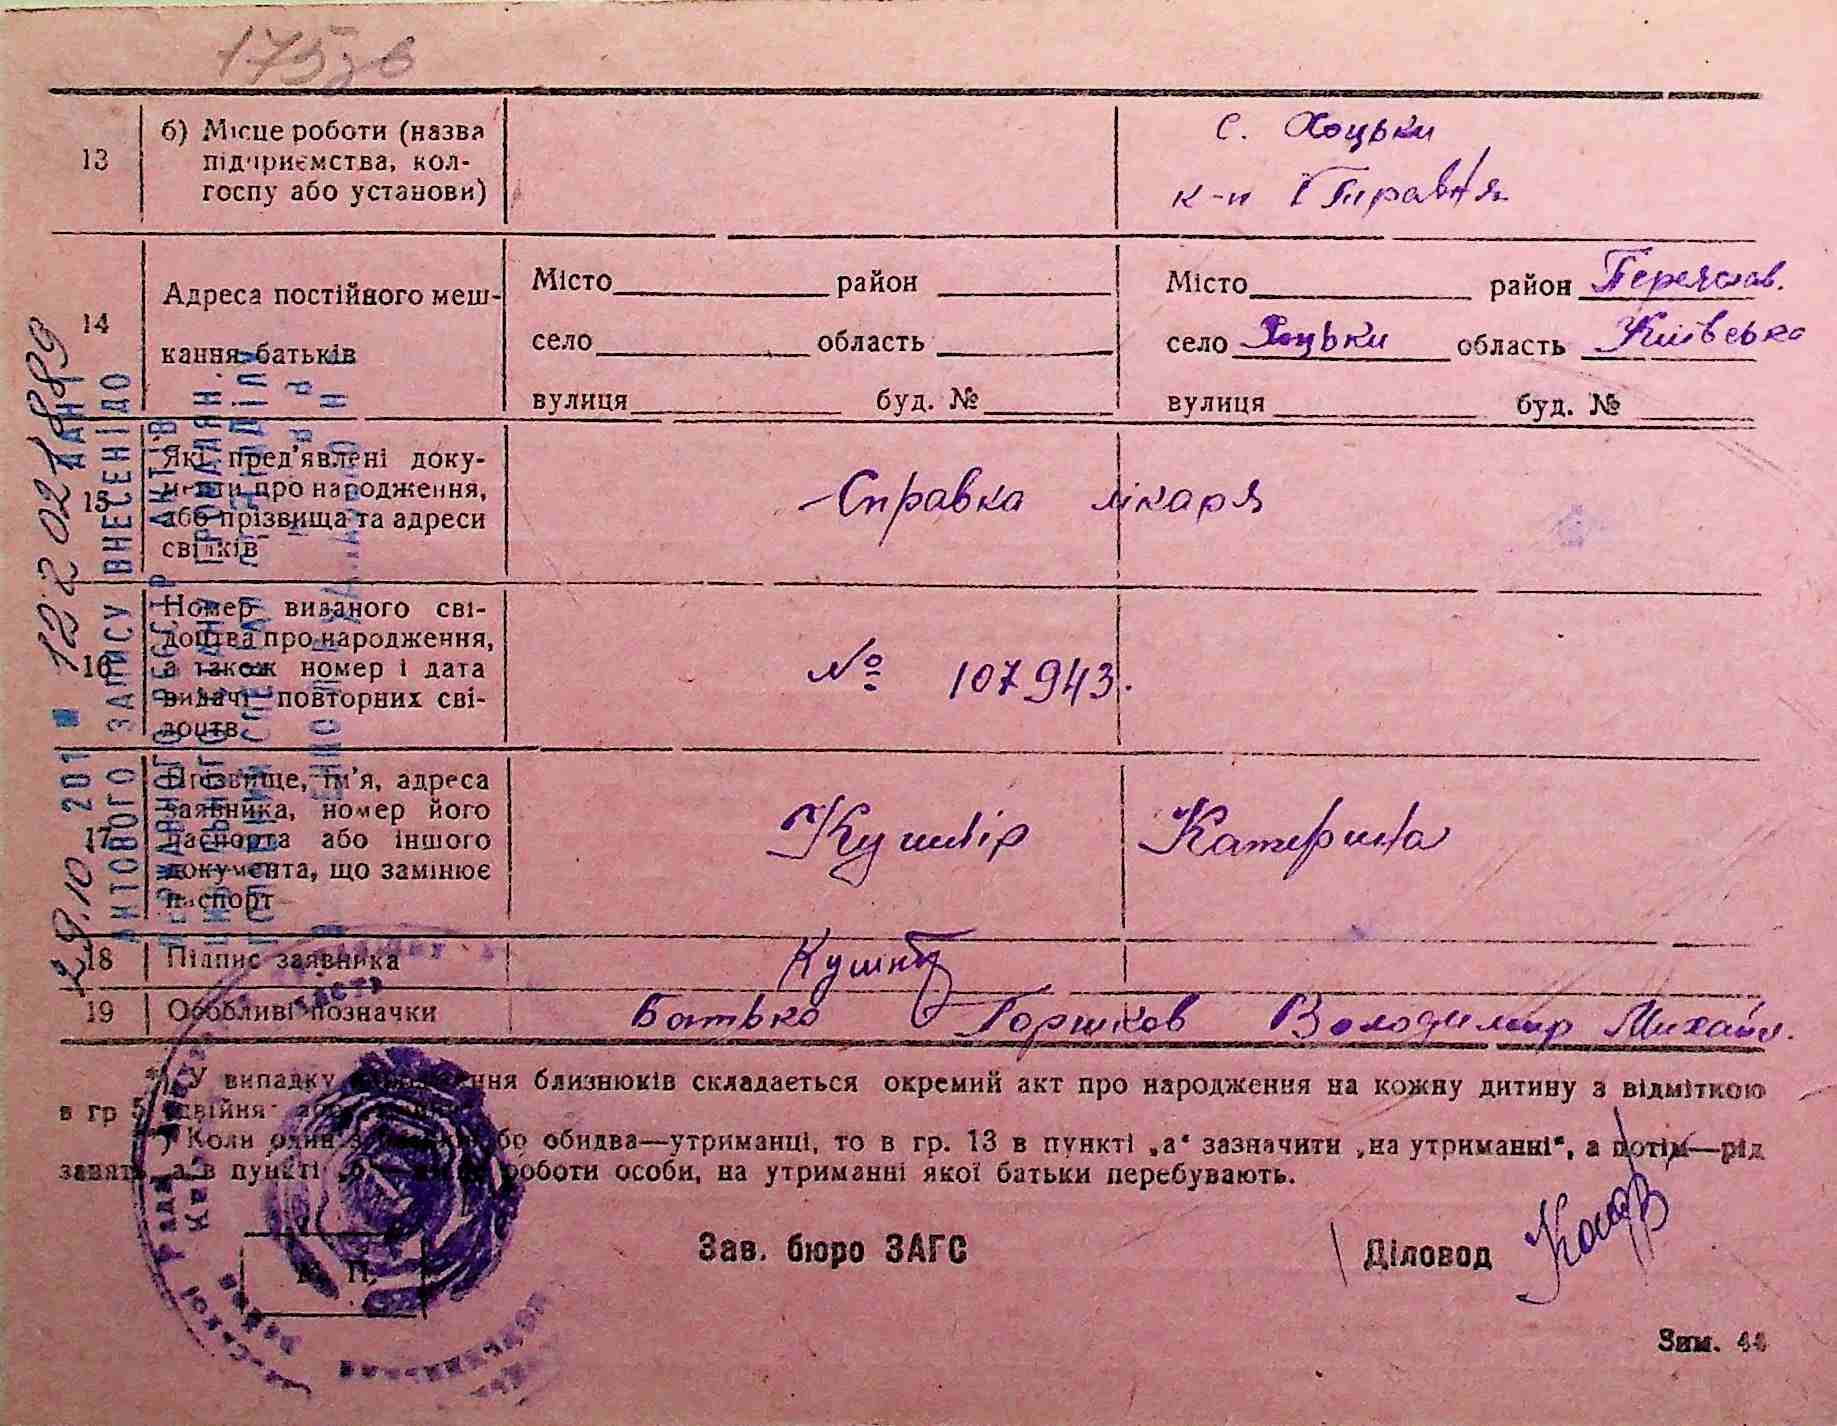 175зв
13
б) Місце роботи (назва
підприємства, кол-
госпу або установи)
с. Хоцьки
к-п 1 Травня
14
Адреса постійного меш-
кання батьків
Місто район
село область
вулиця буд. №
Місто район Переяслав.
село Хоцьки область Київська
вулиця буд. №
15
Які пред'явлені доку-
менти про народження,
або прізвища та адреси
свідків
Справка лікаря
16
Номер виданого сві-
доцтва про народження,
а також номер і дата
видачі повторних сві-
доцтв
№ 107943.
17
Прізвище, ім'я, адреса
заявника, номер його
паспорта або іншого
документа, що замінює
паспорт
Кушнір Катерина
18
Підпис заявника
Кушнір
19
Особливі позначки
Батько Горшков Володимир Михайл.
*) У випадку народження близнюків складається окремий акт про народження на кожну дитину з відміткою
в гр 5 двійня
) Коли один з або обидва—утриманці, то в гр. 13 в пункті „а“ зазначити „на утриманні“, а потім—рід
а в пункті роботи особи, на утриманні якої батьки перебувають.
М. П.
Зав. бюро ЗАГС
Діловод
Зим. 44
29.10 201 122021889
АКТОВОГО ЗАПИСУ ВНЕСЕНІ ДО
ДЕРЖАВНОГО РЕЄСТР АКТІВ
ЦИВІЛЬНОГО СТАНУ ГРОМАДЯН.